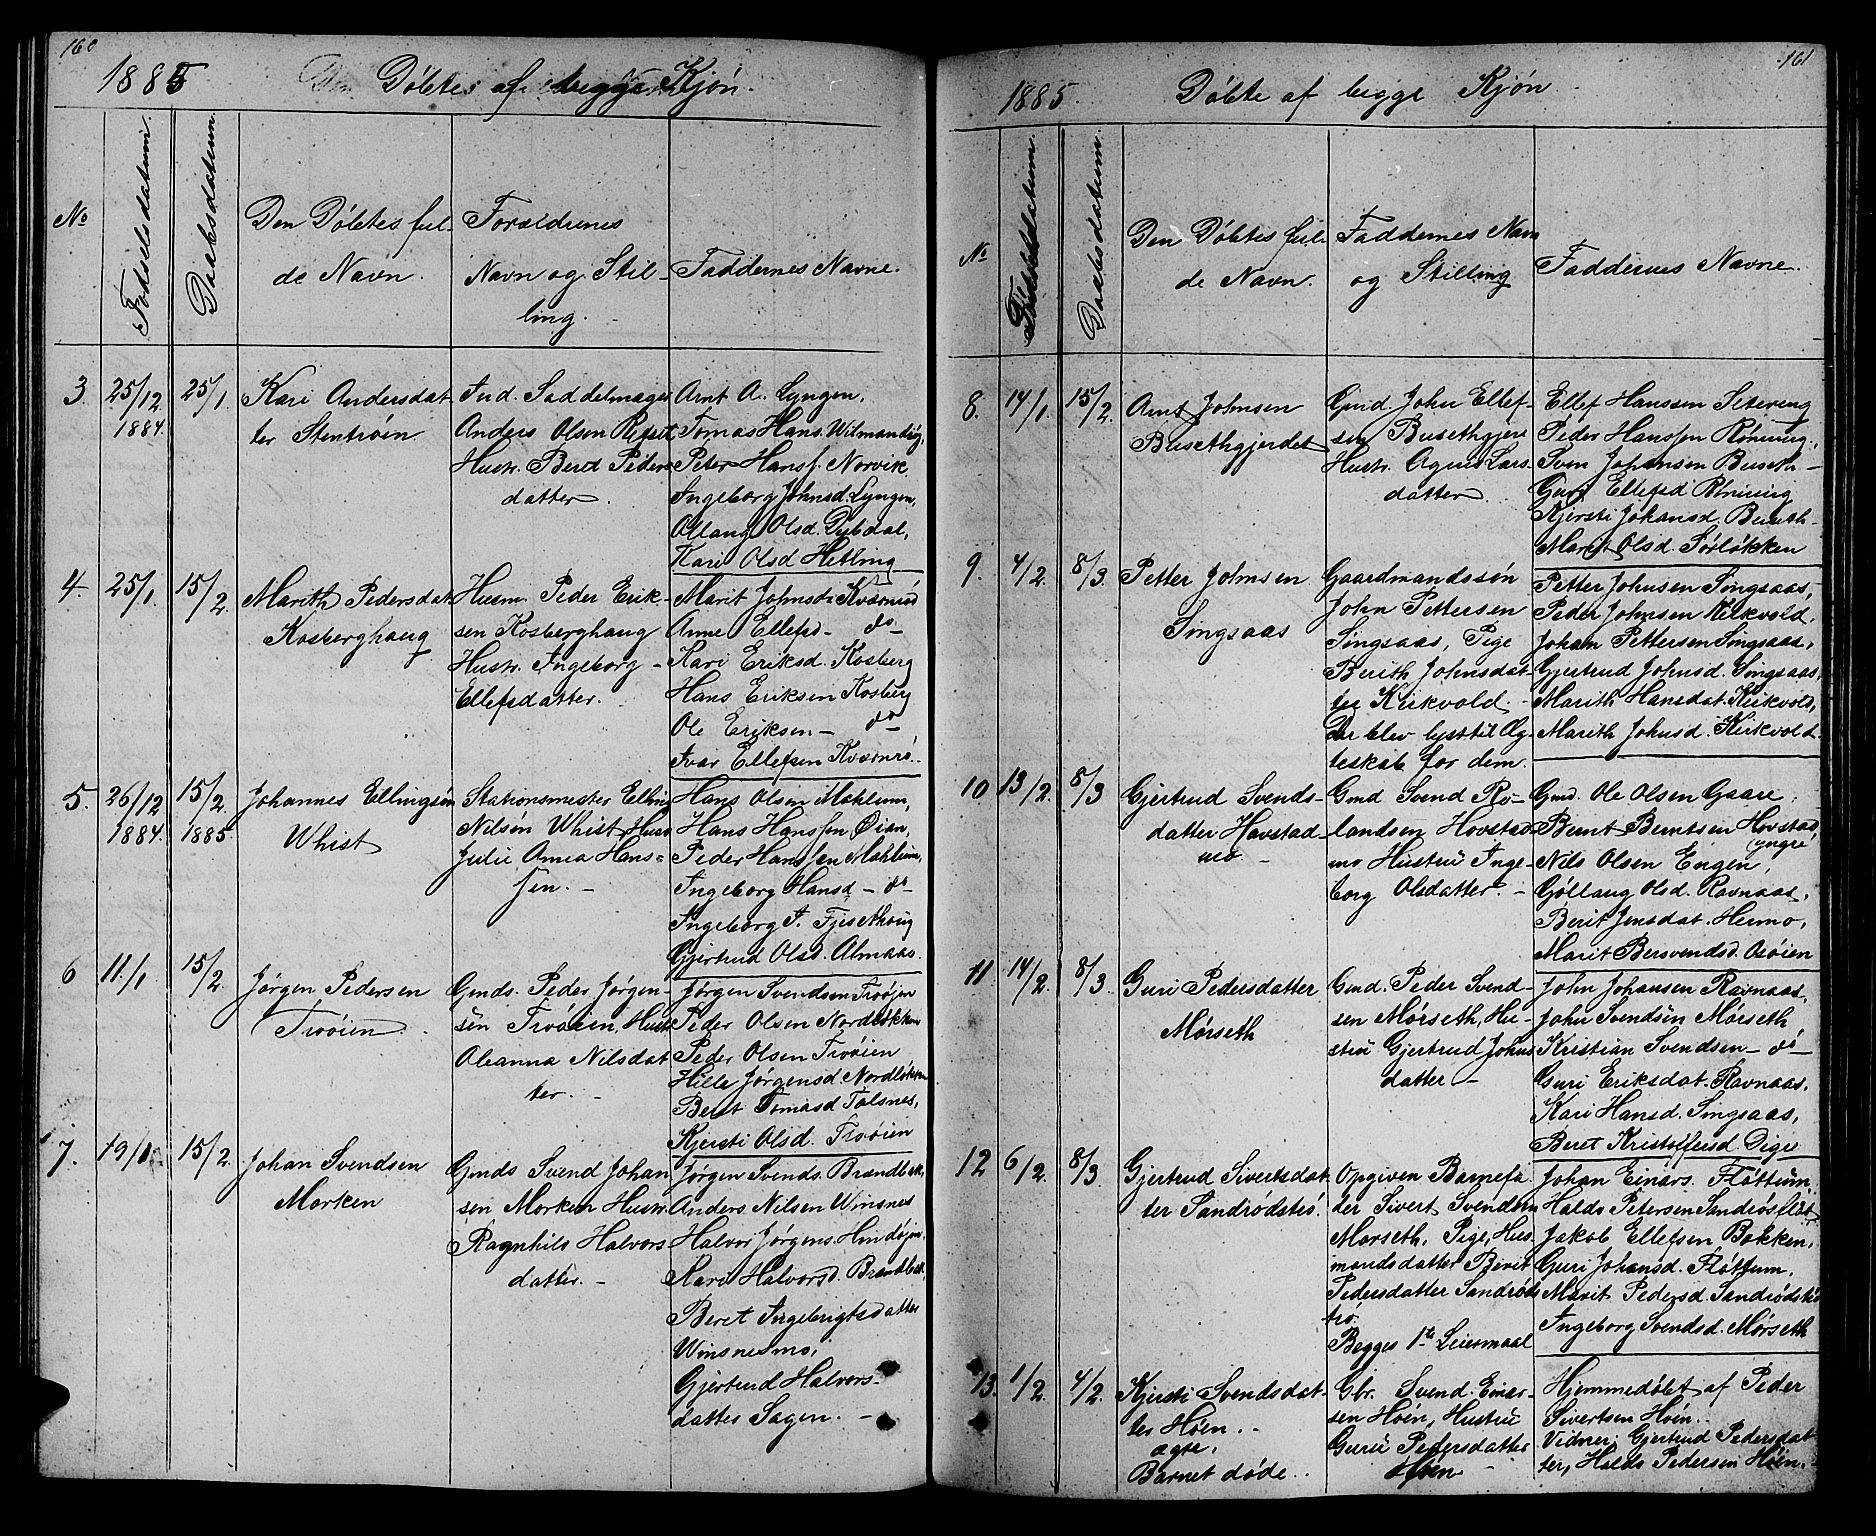 160
1885 Döbtes af begge Kjön.
No
Fødselsdatum.
Daabsdatum.
Den Döbtes ful-
de Navn.
Forældrenes
Navn og Stil-
ling.
Faddernes Navne.
3. 25/12 1884. 25/1.
Kari Andersdat-
ter Stentröen
Ind. Saddelmager
Anders Olsen
Hustr. Berit Peders
datter.
Arnt A. Lyngen,
Tomas Hans.
Peter Hansf. Norvik
Ingeborg Johnsd. Lyngen,
Ollaug Olsd. Dybdal,
Kari Olsd Hetling
4. 25/1. 15/2.
Marith Pedersdat
Kosberghaug
Husm. Peder Erik-
sen Kosberghaug
Hustr. Ingeborg
Ellefsdatter.
Marit Johnsd. Kværnröd
Anne Ellefsd - do -
Kari Eriksd. Kosberg
Hans Eriksen Kosberg
Ole Eriksen - do -
Ivar Ellefsen Kværnrö.
5. 26/12 1884. 15/2. 1885.
Johannes Ellingsön
Whist
Stationsmester Elling
Nilsön Whist Hust
Julie Anna Hans=
sen. -
Hans Olsen Mohlum,
Hans Hanssen Öian,
Peder Hanssen Mohlum,
Ingeborg Hansd - do -
Ingeborg A. Fjisethaug
Gjertrud Olsd. Almaas.
6 11./1 15/2.
Jörgen Pedersen
Troöien.
Gmds. Peder Jörgen-
sen Troöien, Hust
Oleanna Nilsdat
ter. -
Jörgen Svendsen Troöjen
Peder Olsen Nordlökken
Peder Olsen Troöien
Hille Jörgensd. Nordlökken
Beret Tomasd Talsnes,
Kjersti Olsd. Troöien
7. 19/1 15/2.
Johan Svendsen
Morken
Gmds Svend Johan
sen Morken Hustr.
Ragnhild Halvors-
datter. -
Jörgen Svends. Brandbek,
Anders Nilsen Winsnes
Halvor Jörgens.
Kari Halvorsd. Brandbek.
Beret Ingebrigtsdatter
Winsnesmo,
Gjertrud Halvors-
datter Sagen. -
161
1885. Döbte af begge Kjön.
No
Daabsdatum.
Den Döbtes ful-
de Navn.
Faddernes Navn
og Stilling
Faddernes Navne.
8. 14/1. 15/2.
Arnt Johnsen
Busethgjerdet
Gmd. John Ellef-
sen Busethgjere
Hustr. Agnes Lars-
datter.
Ellef Hanssen Setereng
Peder Hanssen Röning,
Sven Johansen Buseth -
Guri Ellefsd Röning
Kjersti Johansd. Buseth -
Marit Olsd. Sörlökken
9. 4/2. 8/3.
Petter Johnsen
Singsaas
Gaardmandssön
John Pettersen
Singsaas, Pige
Berith Johnsdat-
ter Kirkvold. -
Der blev lyst til Æg-
teskab for dem.
Petter Johnsen Singsaas,
Peder Johnsen Kirkvold,
Johan Pettersen Singsaas,
Gjertrud Johnsd. Singsaas,
Marith Hansdat. Kirkvold,
Marith Johnsd. Kirkvold.
10 13/2. 8/3
Gjertrud Svends-
datter Hovstad-
mo -
Gmd Svend Ro-
landsen Hovstad-
mo Hustrü Inge-
borg Olsdatter. -
Gmd. Ole Olsen Gaare,
Bernt Berntsen Hovstad,
yngre
Nils Olsen Engen,
Göllaug Olsd. Ravnaas,
Berit Jensdat. Hermo,
Marit Bersvendsd. Osöien
11 14/2. 8/3.
Guri Pedersdatter
Mörseth
Gmd. Peder Svend-
sen Mörseth, Hu-
strü Gjertrud Johns
datter -
John Johansen Ravnaas,
John Svendsen Mörseth
Kristian Svendsen - do -
Guri Eriksdat. Ravnaas,
Kari Hansd. Singsaas,
Beret Kristoffersd. Dige
12 6/2. 8/3
Gjertrud Sivertsdat-
ter Sandrödströ.
Opgiven Barnefa-
der Sivert Svendsen
Mörseth, Pige, Hus-
mandsdatter Berit
Pedersdatter Sandröds
trö.
Begges 1te Leiermaal
Johan Einars. Flöttum,
Haldo Petersen
Jakob Ellefsen Bakken,
Guri Johansd. Flöttum,
Marit Pedersd. Sandrödströ
Ingeborg Svendsd. Mörseth
13. 1/2. 4/2.
Kjersti Svendsdat-
ter Höen. -
Barnet döde. .
Gbr. Svend Einar-
sen Höen, Hustrü
Gurü Pedersdatter
Hjemmedöbt af Peder
Sivertsen Höen..
Vidner: Gjertrud Pedersdat
ter, Haldo Pedersen Höen.